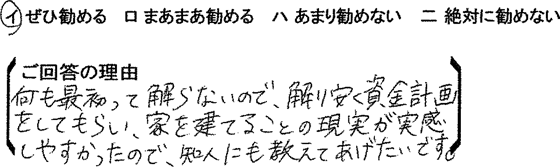 イ ぜひ勧める ロ まあまあ勧める ハ あまり勧めない ニ 絶対に勧めない
ご回答の理由
何も最初って解らないので、解り安く資金計画
をしてもらい、家を建てることの現実が実感
しやすかったので、知人にも教えてあげたいです。